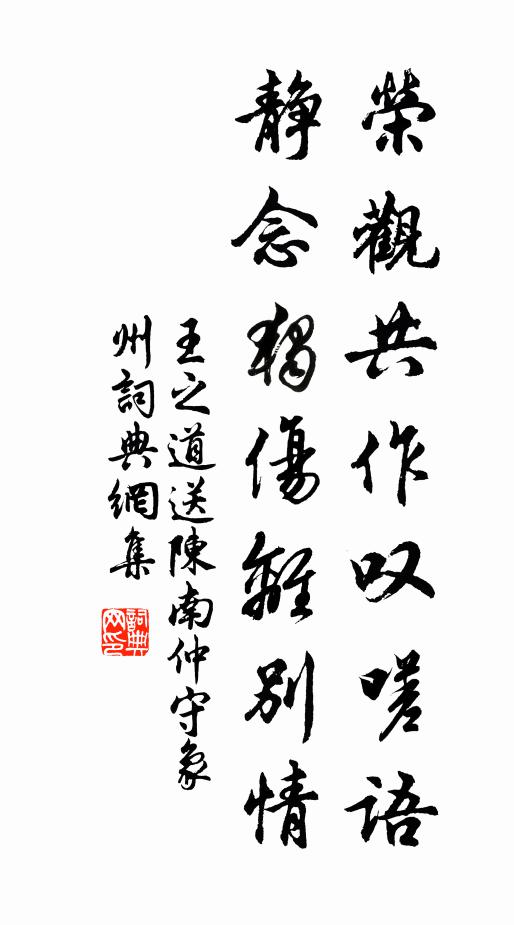 榮觀共作叹嗟語
静念獨傷離别情
王之道送陳南仲守象
州詞典網集
詞典
网印